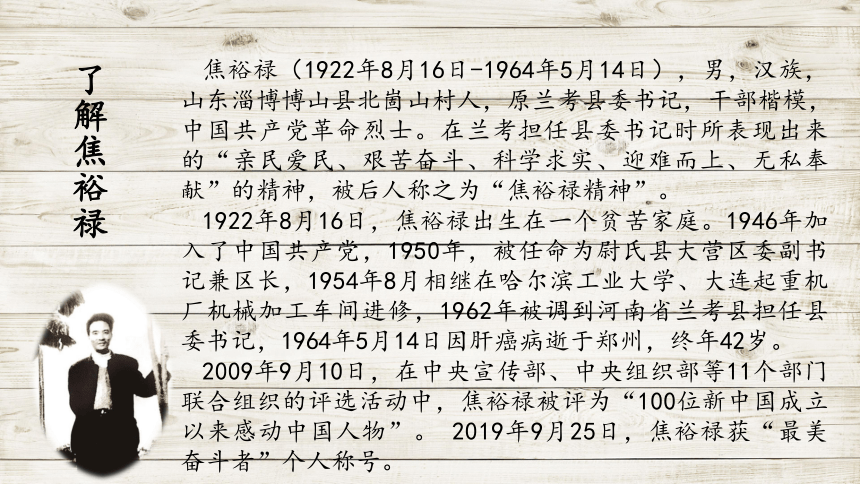 了解焦裕禄
焦裕禄（1922年8月16日-1964年5月14日），男，汉族，
山东淄博博山县北崮山村人，原兰考县委书记，干部楷模，
中国共产党革命烈士。在兰考担任县委书记时所表现出来
的“亲民爱民、艰苦奋斗、科学求实、迎难而上、无私奉
献”的精神，被后人称之为“焦裕禄精神”。
1922年8月16日，焦裕禄出生在一个贫苦家庭。1946年加
入了中国共产党，1950年，被任命为尉氏县大营区委副书
记兼区长，1954年8月相继在哈尔滨工业大学、大连起重机
厂机械加工车间进修，1962年被调到河南省兰考县担任县
委书记，1964年5月14日因肝癌病逝于郑州，终年42岁。
2009年9月10日，在中央宣传部、中央组织部等11个部门
联合组织的评选活动中，焦裕禄被评为“100位新中国成立
以来感动中国人物”。 2019年9月25日，焦裕禄获“最美
奋斗者”个人称号。